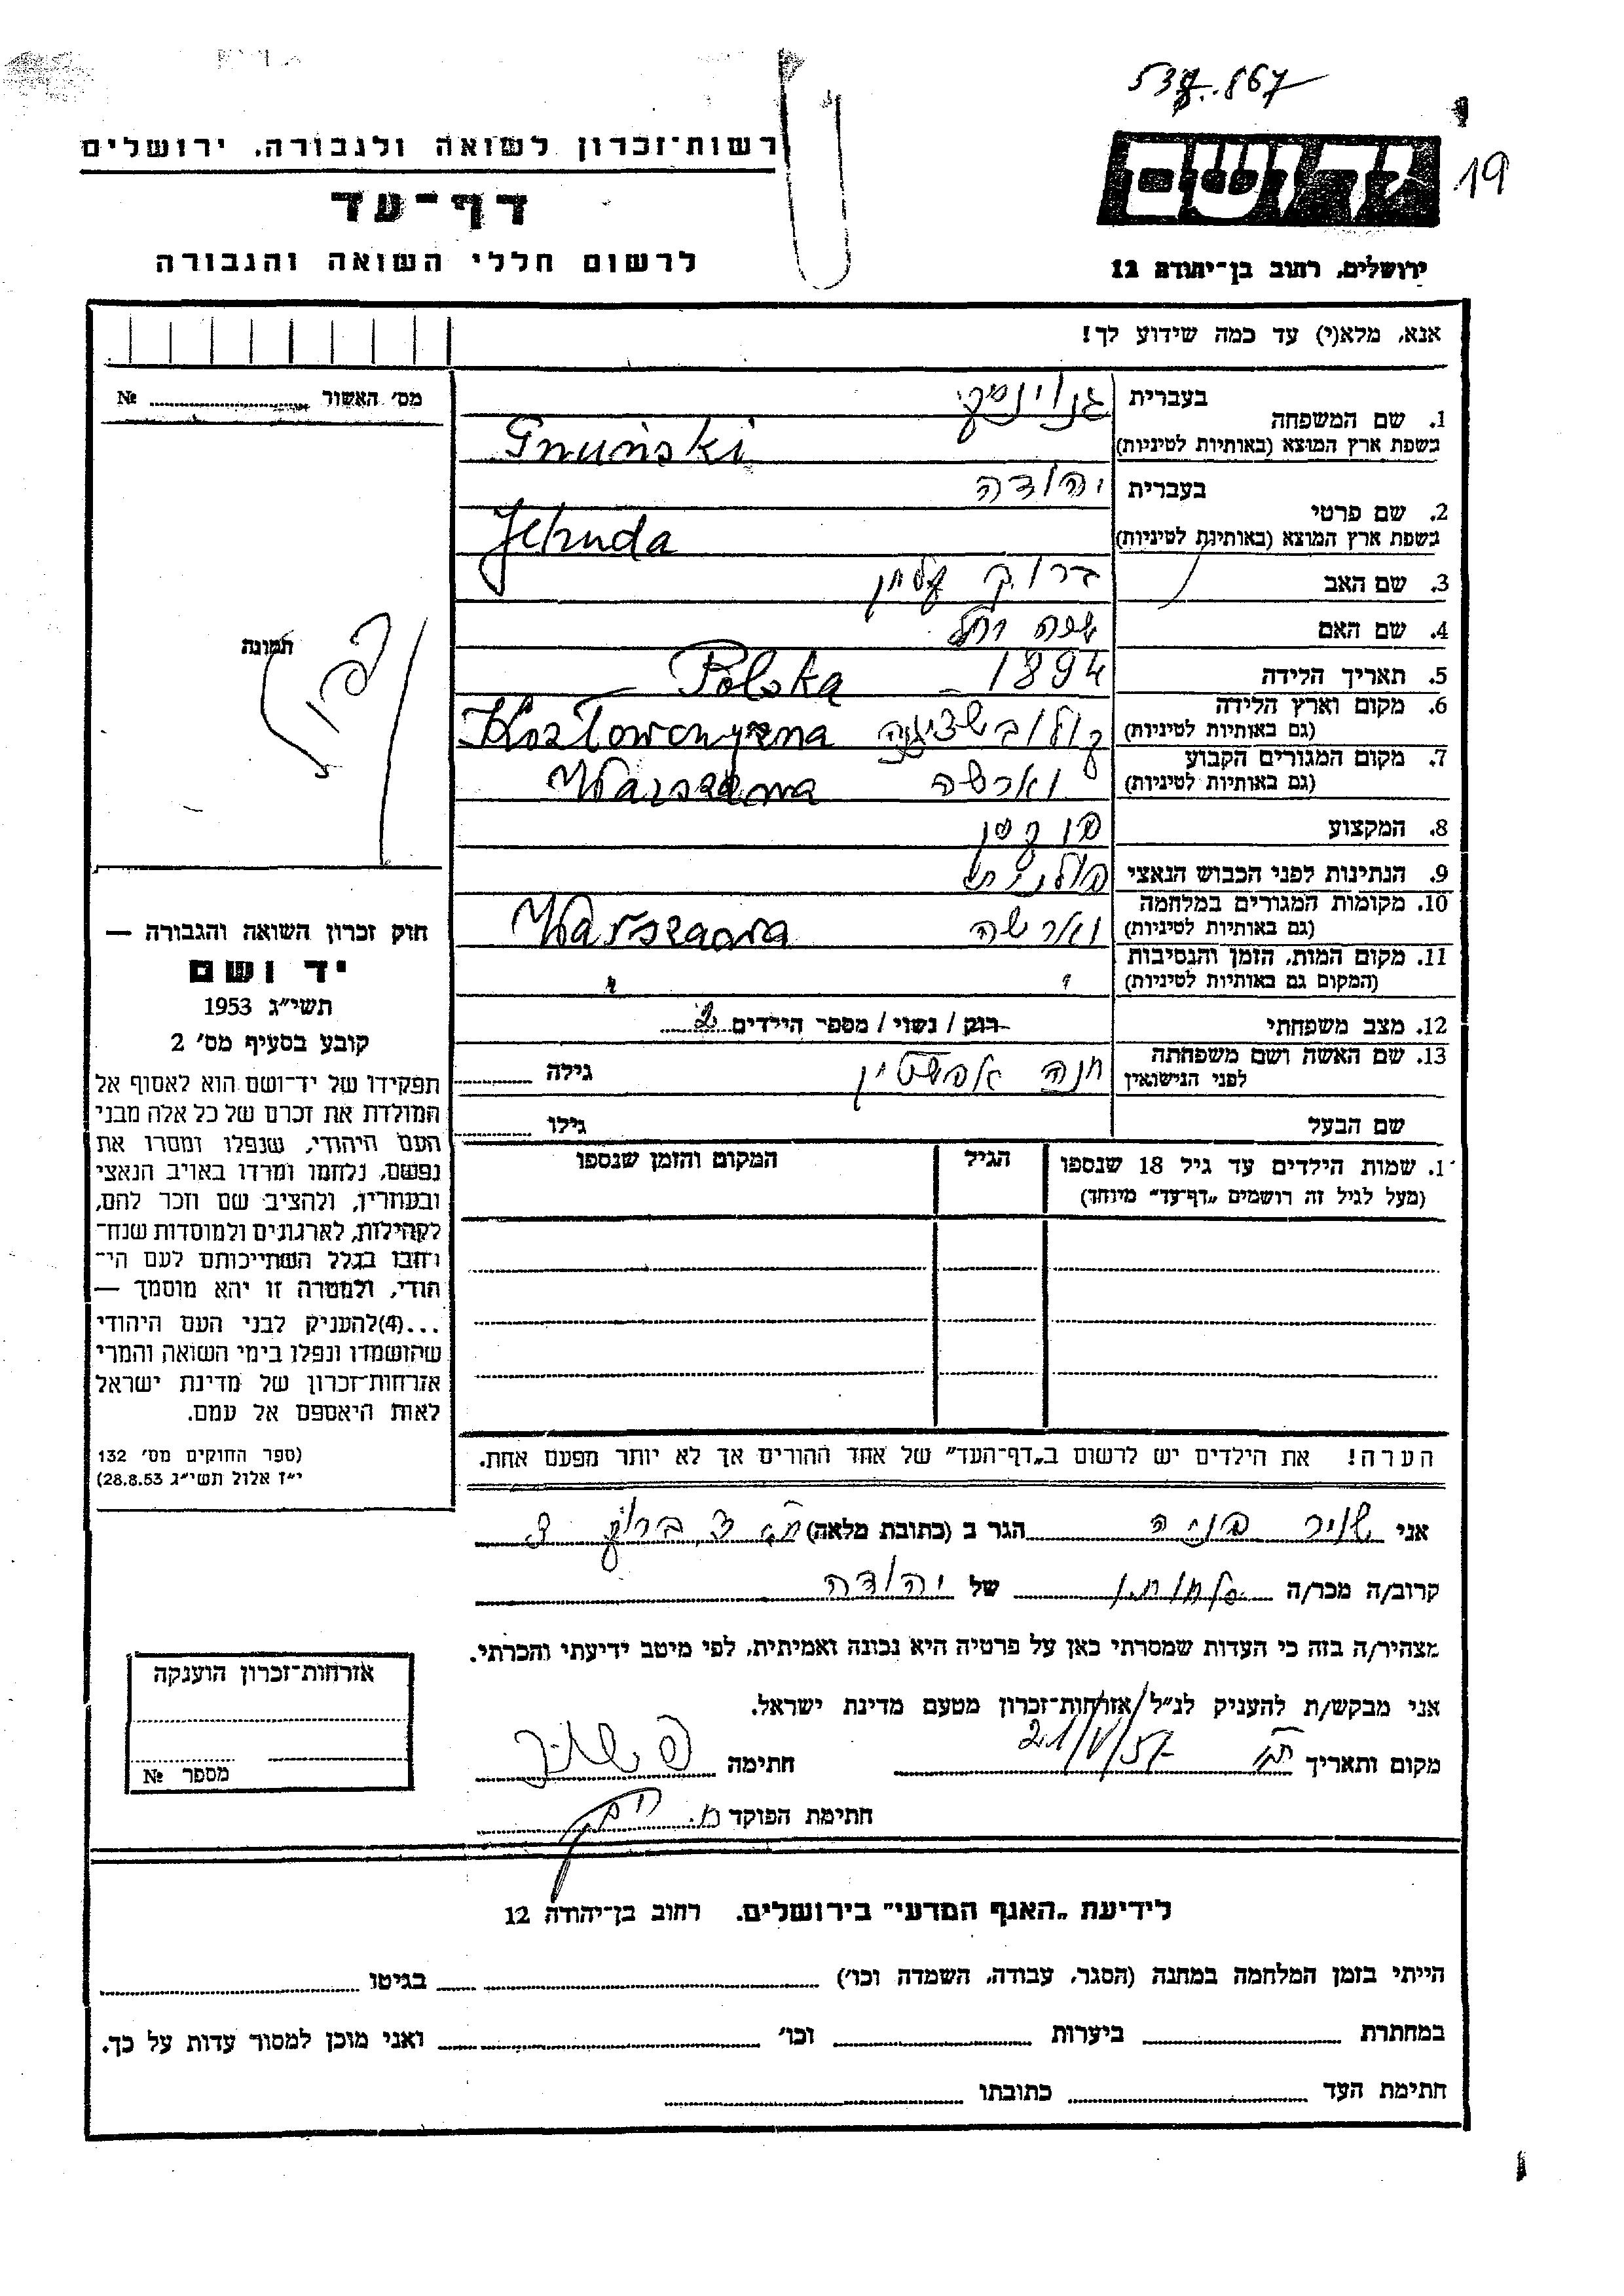 538.867
19
רשות־זכרון לשואה ולגבורה, ירושלים
דף־עד
לרשום חללי השואה והגבורה
ידושם
ירושלים, רחוב בן־יהודה 12
אנא, מלא(י) עד כמה שידוע לך!
מס׳ האשור ........ №
תמונה
1. שם המשפחה
בעברית
בשפת ארץ המוצא (באותיות לטיניות)
Gnuiński
2. שם פרטי
בעברית יהודה
בשפת ארץ המוצא (באותיות לטיניות) Jehuda
3. שם האב ברוך
4. שם האם
5. תאריך הלידה 1894
6. מקום וארץ הלידה Polska
(גם באותיות לטיניות) Kozłowczyzna
7. מקום המגורים הקבוע
(גם באותיות לטיניות) וארשה Warszawa
8. המקצוע
9. הנתינות לפני הכבוש הנאצי פולנית
10. מקומות המגורים במלחמה
(גם באותיות לטיניות) וארשה Warszawa
11. מקום המות, הזמן והנסיבות
(המקום גם באותיות לטיניות) " "
12. מצב משפחתי רוק / נשוי / מספר הילדים 2
13. שם האשה ושם משפחתה
לפני הנישואין חנה אפשטיין גילה ........
שם הבעל גילו ........
1. שמות הילדים עד גיל 18 שנספו הגיל המקום והזמן שנספו
(מעל לגיל זה רושמים „דף־עד״ מיוחד)
הערה! את הילדים יש לרשום ב„דף־העד״ של אחד ההורים אך לא יותר מפעם אחת.
חוק זכרון השואה והגבורה —
יד ושם
תשי״ג 1953
קובע בסעיף מס׳ 2
תפקידו של יד־ושם הוא לאסוף אל
המולדת את זכרם של כל אלה מבני
העם היהודי, שנפלו ומסרו את
נפשם, נלחמו ומרדו באויב הנאצי
ובעוזריו, ולהציב שם וזכר להם,
לקהילות, לארגונים ולמוסדות שנח־
רחבו בגלל השתייכותם לעם הי־
הודי, ולמטרה זו יהא מוסמך —
...(4)להעניק לבני העם היהודי
שהושמדו ונפלו בימי השואה והמרי
אזרחות־זכרון של מדינת ישראל
לאות היאספם אל עמם.
(ספר החוקים מס׳ 132
י״ז אלול תשי״ג 28.8.53)
אני שניר פניה הגר ב (כתובת מלאה)
קרוב/ה מכר/ה של יהודה
מצהיר/ה בזה כי העדות שמסרתי כאן על פרטיה היא נכונה ואמיתית, לפי מיטב ידיעתי והכרתי.
אני מבקש/ת להעניק לנ״ל אזרחות־זכרון מטעם מדינת ישראל.
מקום ותאריך 21/V/57 חתימה
חתימת הפוקד
אזרחות־זכרון הוענקה
מספר №
לידיעת „האגף המדעי״ בירושלים. רחוב בן־יהודה 12
הייתי בזמן המלחמה במחנה (הסגר, עבודה, השמדה וכו׳) ........ בגיטו ........
במחתרת ........ ביערות ........ וכו׳ ........ ואני מוכן למסור עדות על כך.
חתימת העד ........ כתובתו ........